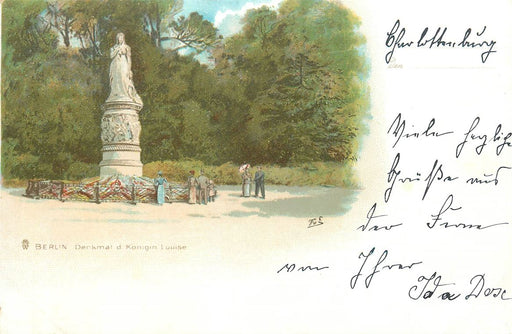 Charlottenburg
Viele herzliche
Grüße aus
der Ferne
von Ihrer
Ida
BERLIN Denkmal d. Königin Luise